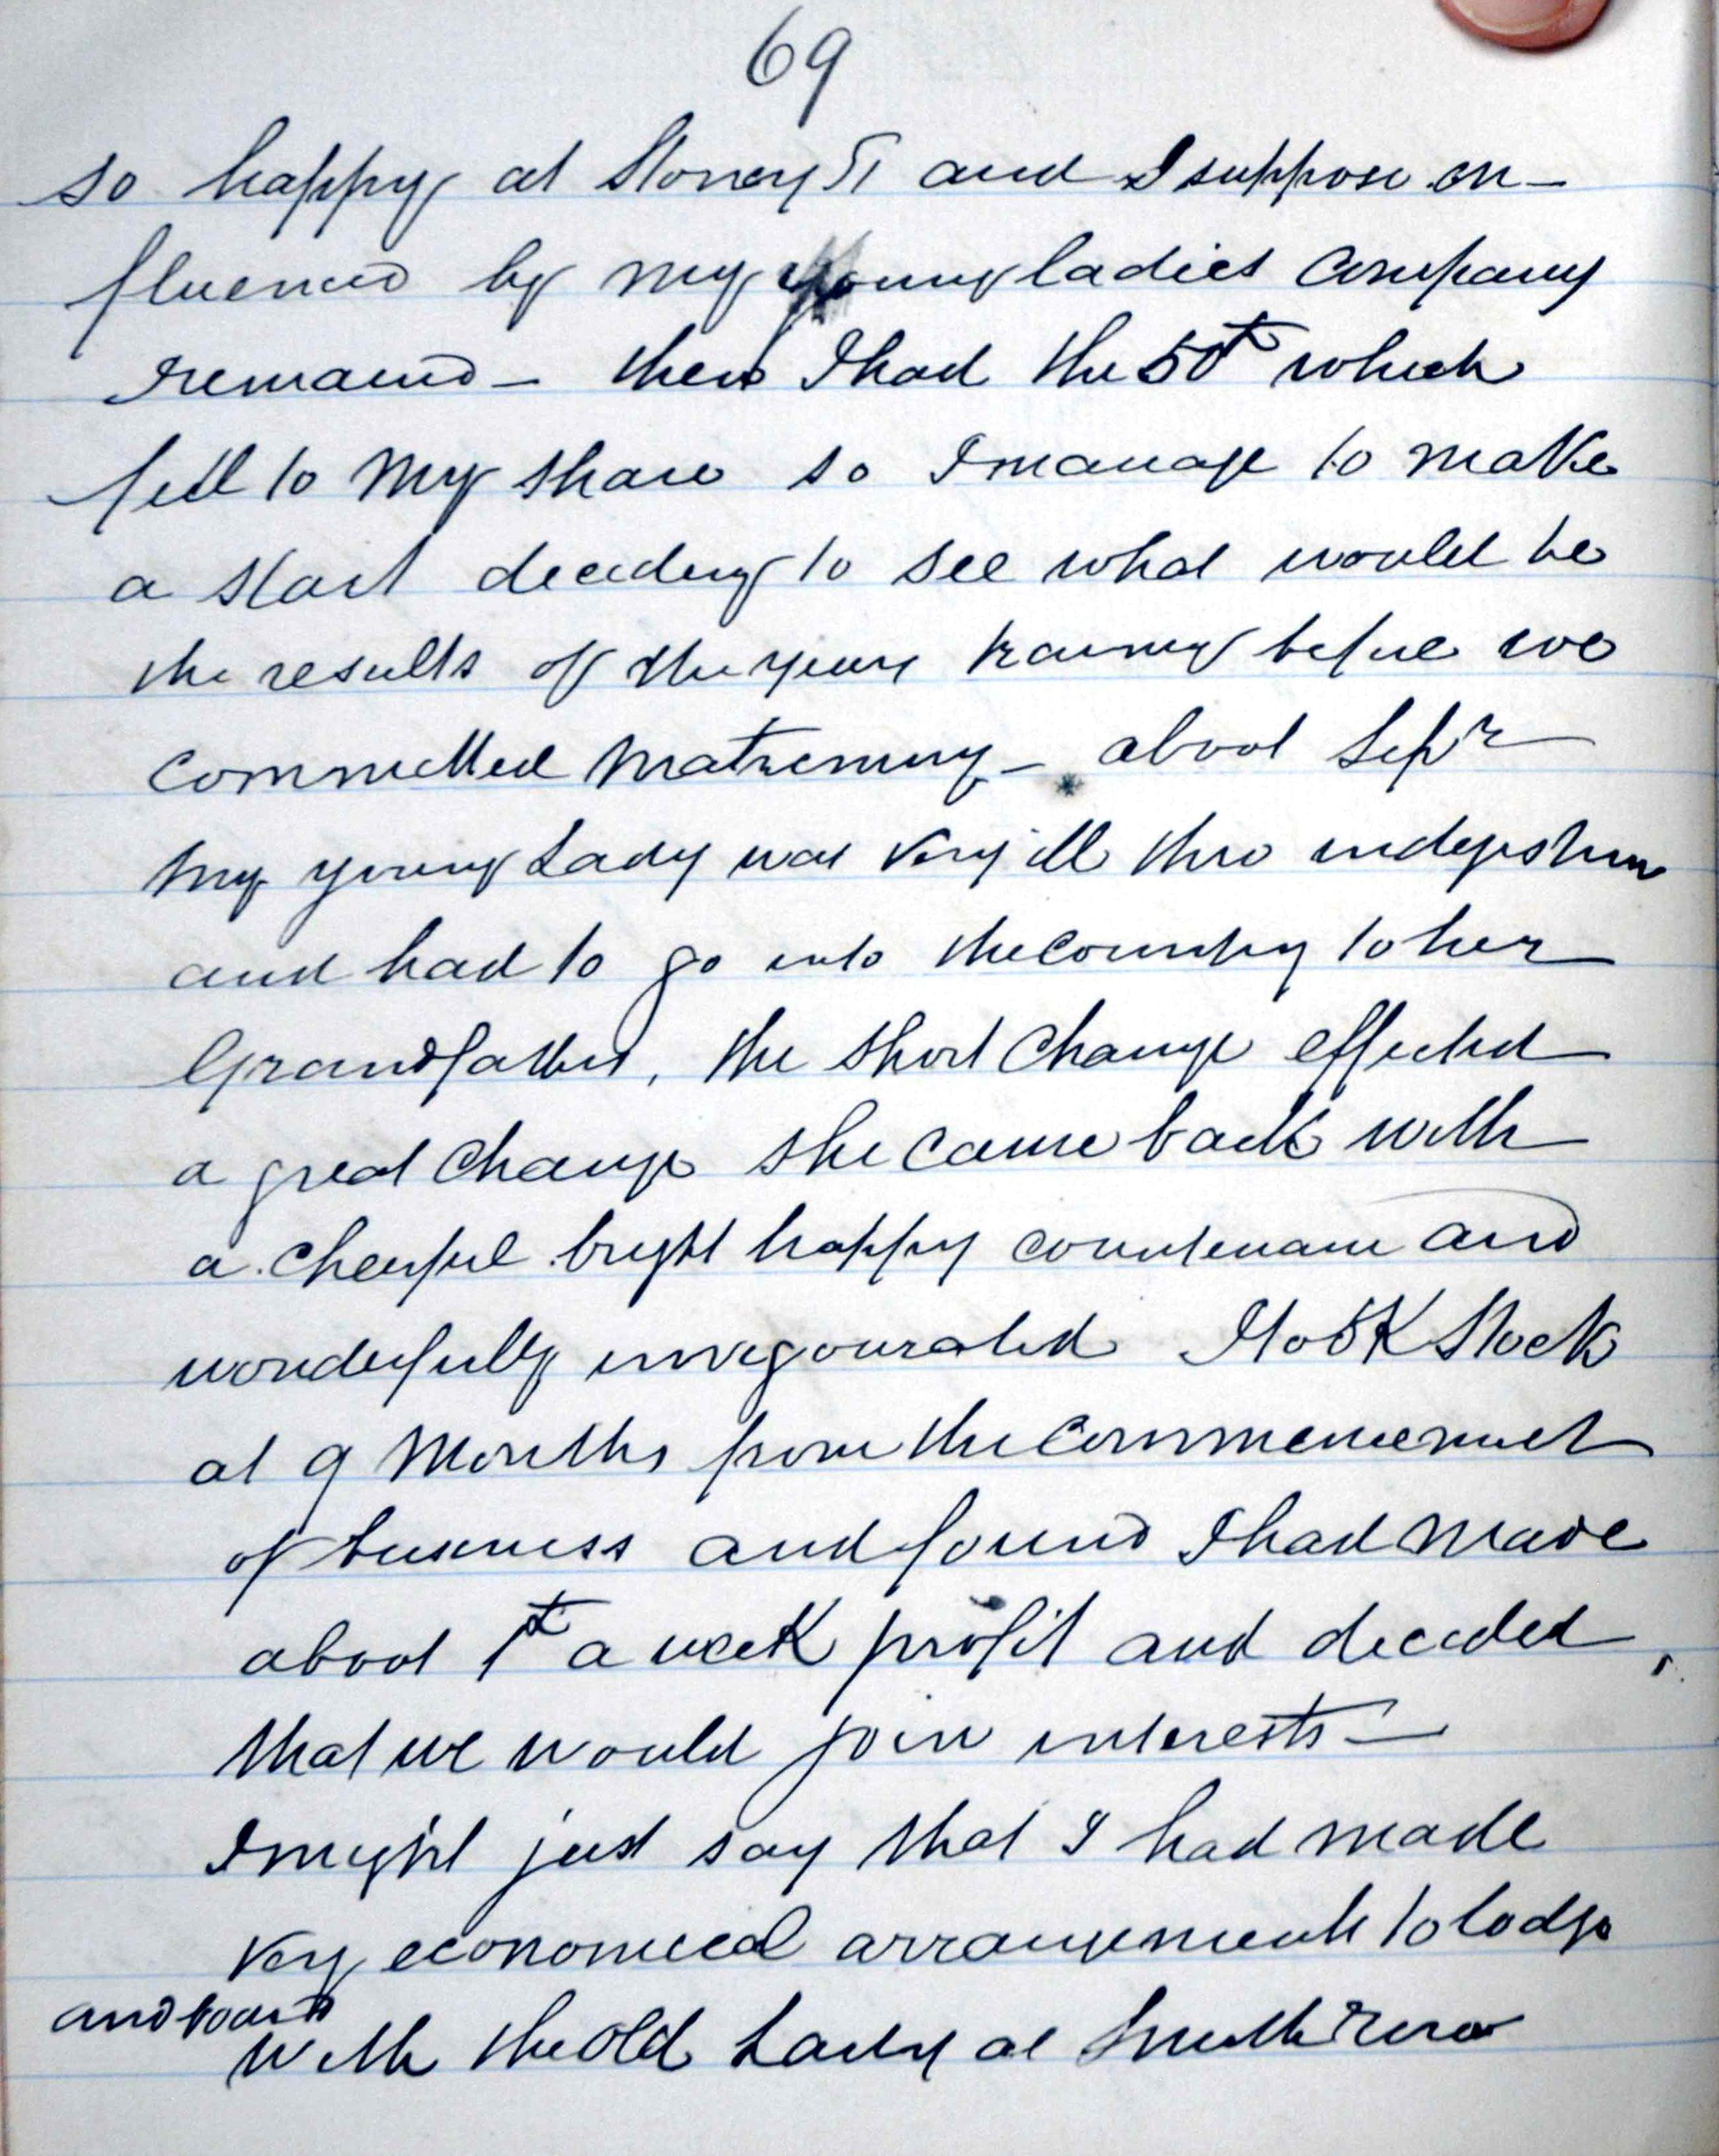 69
so happy at Stoney St and I suppose in-
fluenced by my young ladies company
remained - then I had the 50£ which
fell to my share so I manage to make
a start deciding to see what would be
the results of the years training before we
committed matrimony - about Sepr
my young Lady was very ill thro indigestion
and had to go into the country to her
Grandfather, the short change effected
a great change she came back with
a cheerful bright happy countenance and
wonderfully invigourated I took Stock
at 9 Months from the commencement
of business and found I had made
about 1£ a week profit and decided
that we would join interests -
I might just say that I had made
very economical arrangements to lodge
and board
with the old Lady at